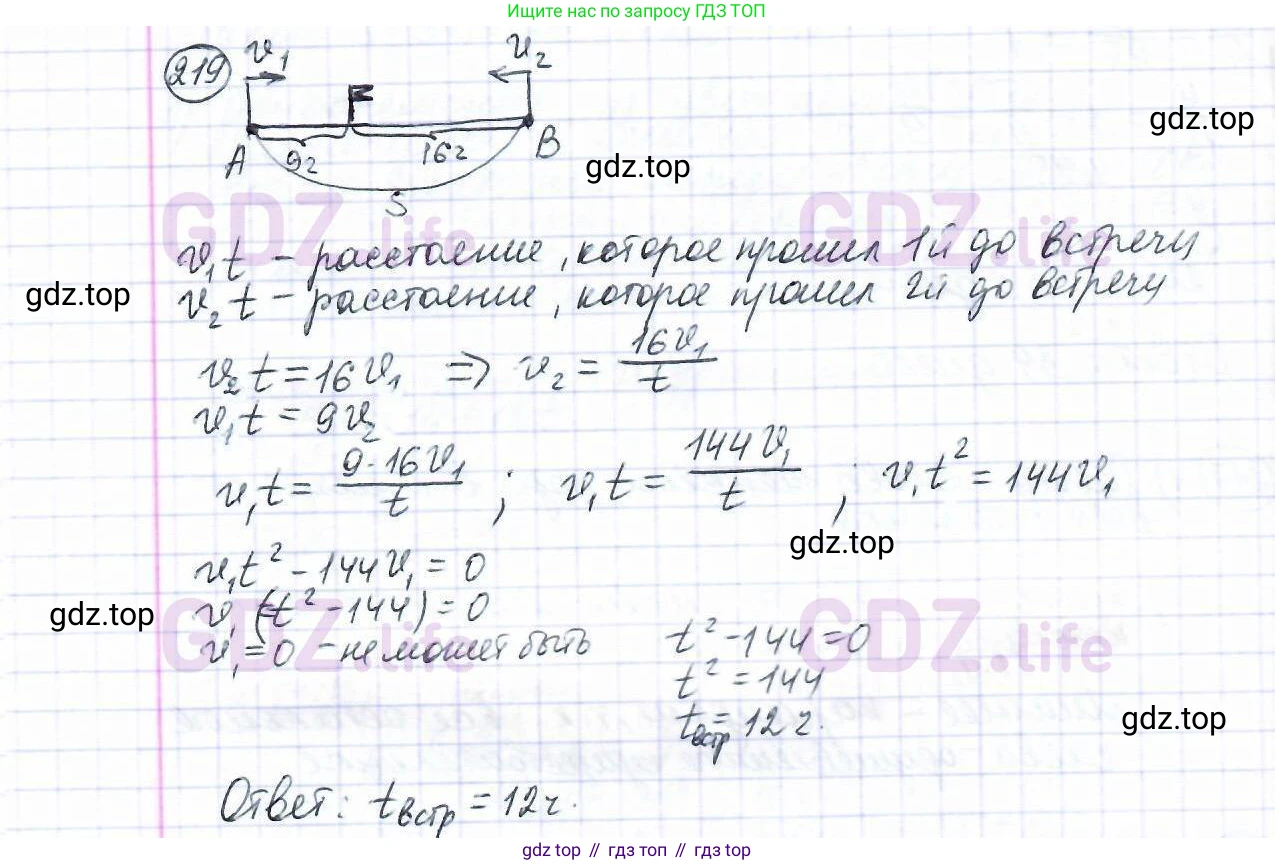 Ищите нас по запросу ГДЗ ТОП
219 v₁ v₂
gdz.top
A 9ч 16ч B
gdz.top
S
GDZ.life GDZ.life
v₁t – расстояние, которое прошел 1й до встречи
gdz.top
v₂t – расстояние, которое прошел 2й до встречи
v₂t = 16v₁ ⇒ v₂ = 16v₁/t
v₁t = 9v₂
v₁t = 9·16v₁/t ; v₁t = 144v₁/t ; v₁t² = 144v₁
gdz.top
v₁t² – 144v₁ = 0
gdz.top
v₁(t² – 144) = 0
GDZ.life GDZ.life
v₁ = 0 – не может быть t² – 144 = 0
t² = 144
gdz.top
tвстр = 12 ч.
Ответ: tвстр = 12 ч.
gdz.top // гдз топ // gdz.top